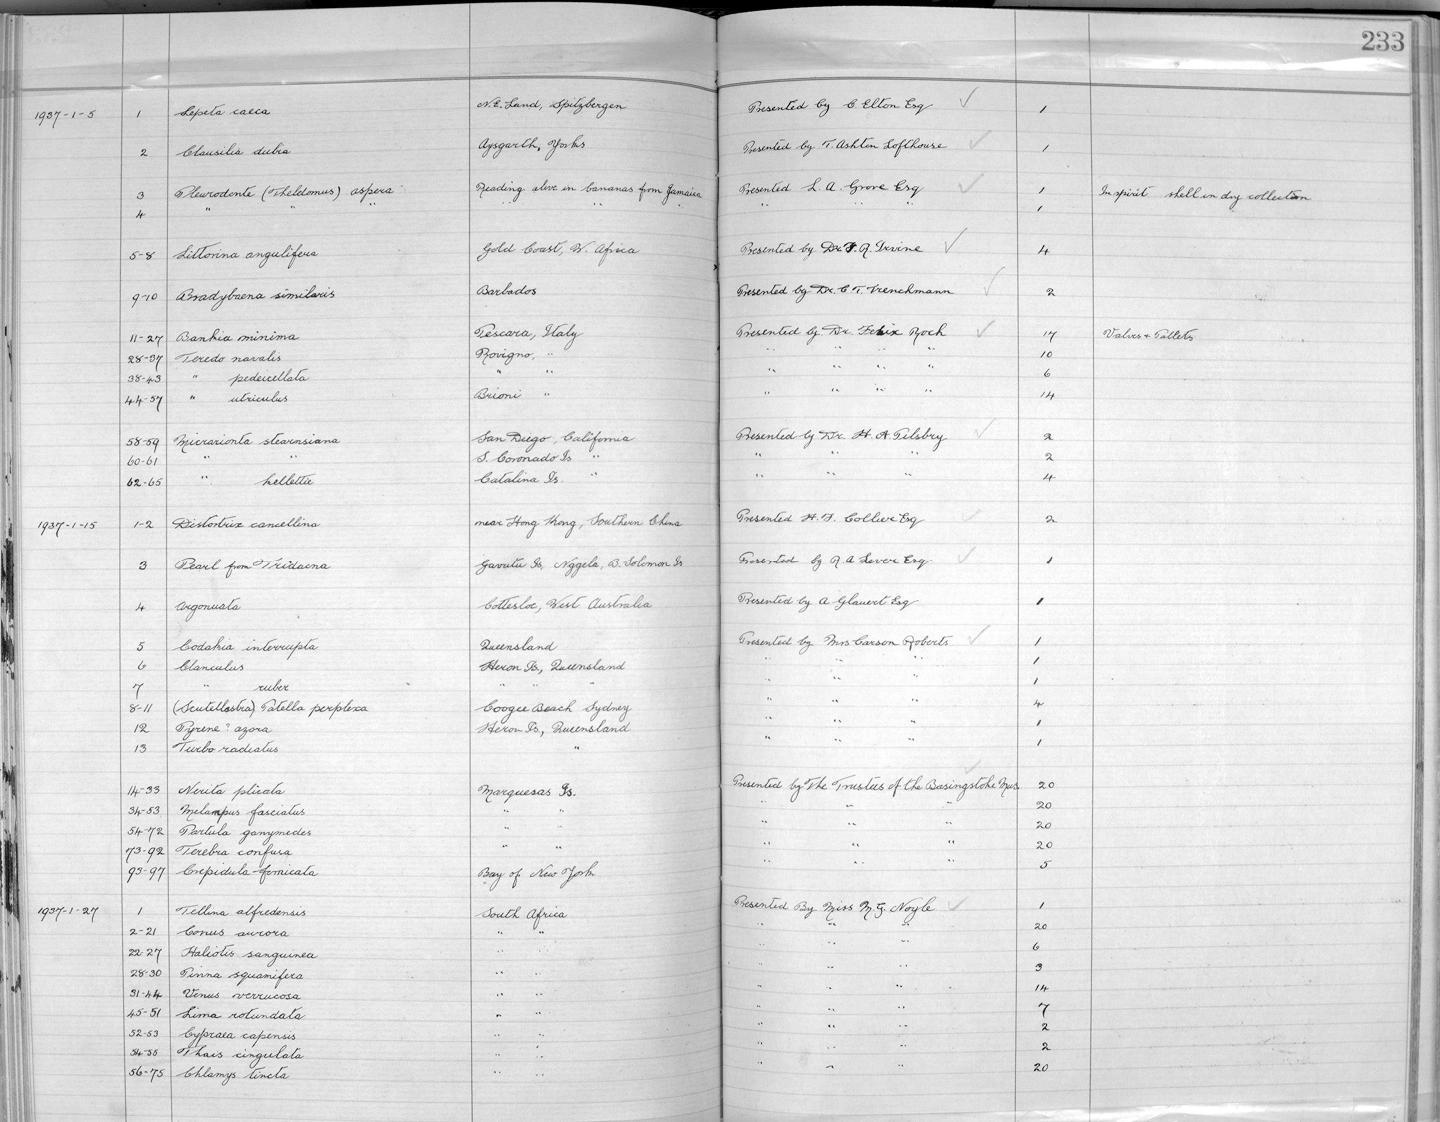 233
1937-1-5 1 Lepeta caeca N.E. Land, Spitzbergen Presented by C. Elton Esq ✓ 1
2 Clausilia dubia Aysgarth, Yorks Presented by T. Ashton Lofthouse ✓ 1
3 Pleurodonte (Thelidomus) aspera Reading alive in bananas from Jamaica Presented L. A. Grove Esq ✓ 1 In spirit shell in dry collection
4 " " " " " " " " " 1
5-8 Littorina angulifera Gold Coast, W. Africa Presented by Dr. F. R. Irvine ✓ 4
9-10 Bradybaena similaris Barbados Presented by Dr. C. T. Trenchmann ✓ 2
11-27 Bankia minima Pescara, Italy Presented by Dr. Felix Roch ✓ 17 Valves + Pallets
28-37 Teredo navalis Rovigno, " " " " " 10
38-43 " pedicellata " " " " " " 6
44-57 " utriculus Brioni " " " " " 14
58-59 Micrarionta stearnsiana San Diego, California Presented by Dr. H. A. Pilsbry ✓ 2
60-61 " " S. Coronado Is " " " " 2
62-65 " kellettii Catalina Is. " " " " 4
1937-1-15 1-2 Distortrix cancellina near Hong Kong, Southern China Presented H. F. Collier Esq ✓ 2
3 Pearl from Tridacna Gavutu Is, Nggela, B. Solomon Is Presented by R. A. Lever Esq ✓ 1
4 Argonauta Cottesloe, West Australia Presented by A Glauert Esq 1
5 Codakia interrupta Queensland Presented by Mrs Carson Roberts ✓ 1
6 Clanculus Heron Is, Queensland " " " 1
7 " ruber " " " " " " 1
8-11 (Scutellastra) Patella perplexa Coogee Beach Sydney " " " 4
12 Pyrene? azora Heron Is, Queensland " " " 1
13 Turbo radiatus " " " " 1
14-33 Nerita plicata Marquesas Is. Presented by The Trustees of the Basingstoke Mus. ✓ 20
34-53 Melampus fasciatus " " " " " 20
54-72 Partula ganymedes " " " " " 20
73-92 Terebra confusa " " " " " 20
93-97 Crepidula fornicata Bay of New York " " " 5
1937-1-27 1 Tellina alfredensis South Africa Presented By Miss M. G. Noyle ✓ 1
2-21 Conus aurora " " " " " 20
22-27 Haliotis sanguinea " " " " " 6
28-30 Pinna squamifera " " " " " 3
31-44 Venus verrucosa " " " " " 14
45-51 Lima rotundata " " " " " 7
52-53 Cypraea capensis " " " " " 2
54-55 Thais cingulata " " " " " 2
56-75 Chlamys tincta " " " " " 20